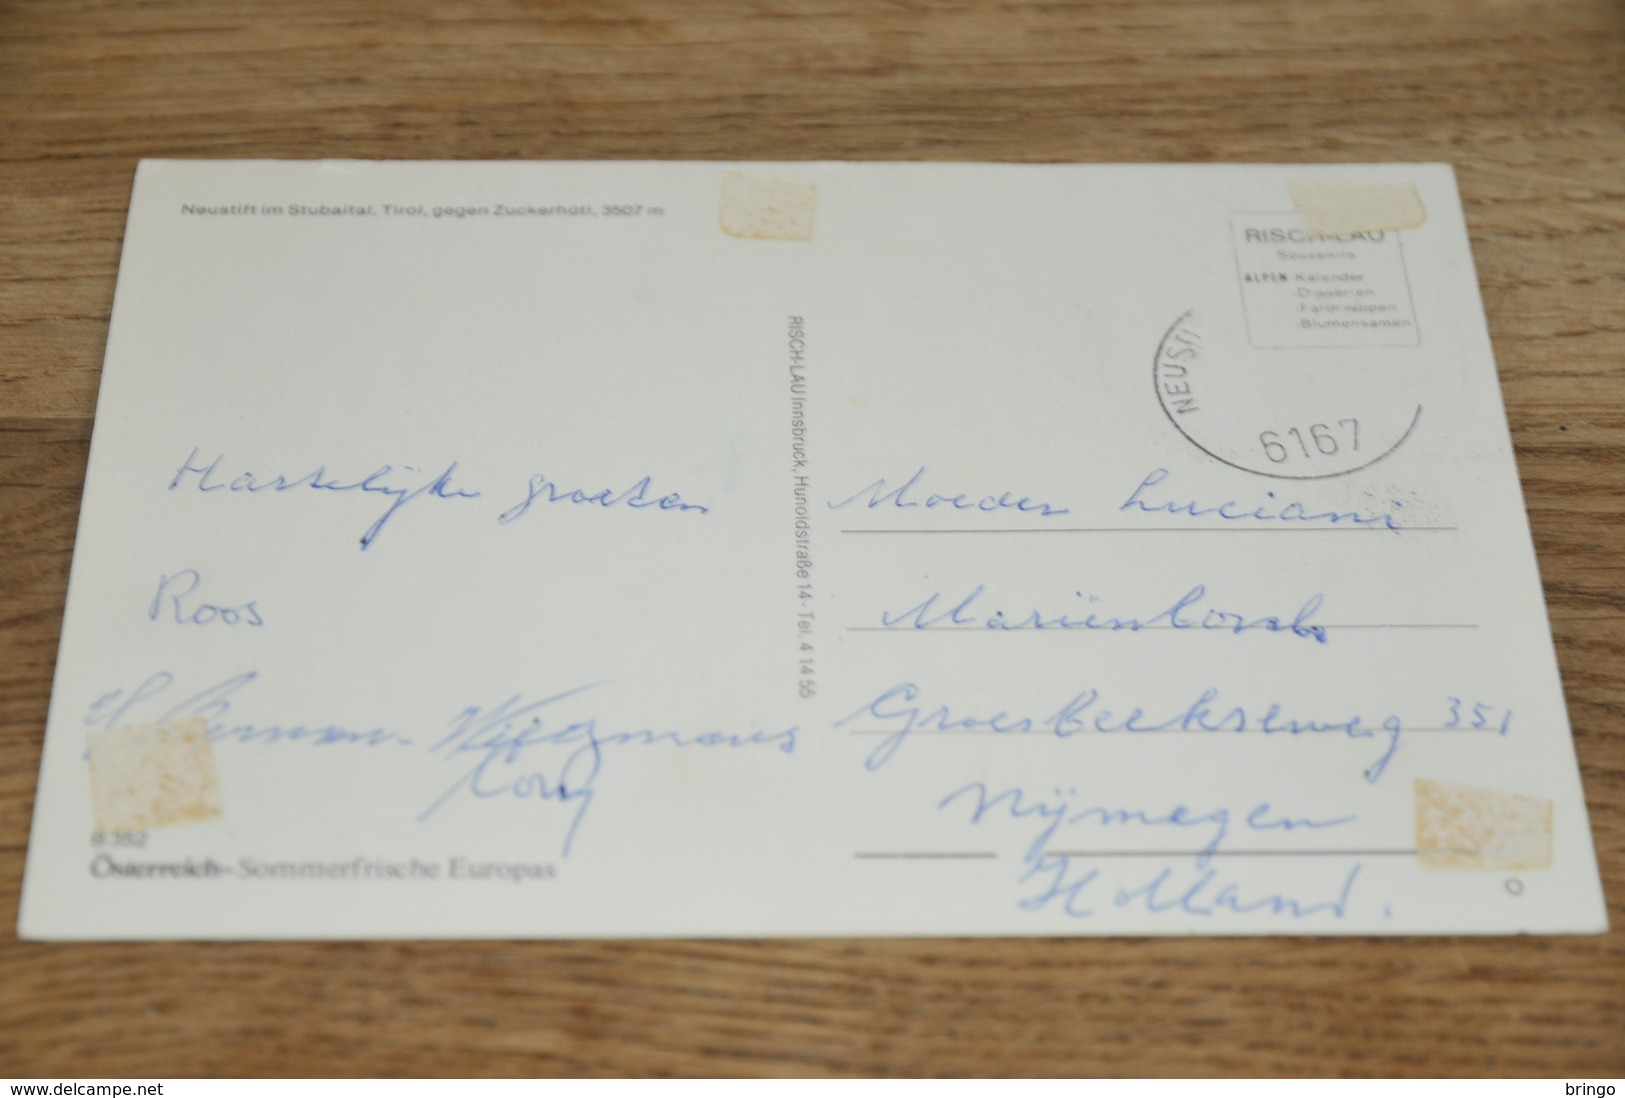 Neustift im Stubaital, Tirol, gegen Zuckerhütl, 3507 m
RISCH-LAU
Souvenirs
ALPEN-Kalender
-Diaserien
-Farbmappen
-Blumensamen
NEUSTI
6167
RISCH-LAU Innsbruck, Hunoldstraße 14 · Tel. 4 14 55
Hartelijke groeten
Roos
Wiegmans
Cony
Moeder Luciani
Mariënbosch
Groesbeekseweg 351
Nijmegen
Holland.
B 352
Österreich-Sommerfrische Europas
delcampe.net
bringo